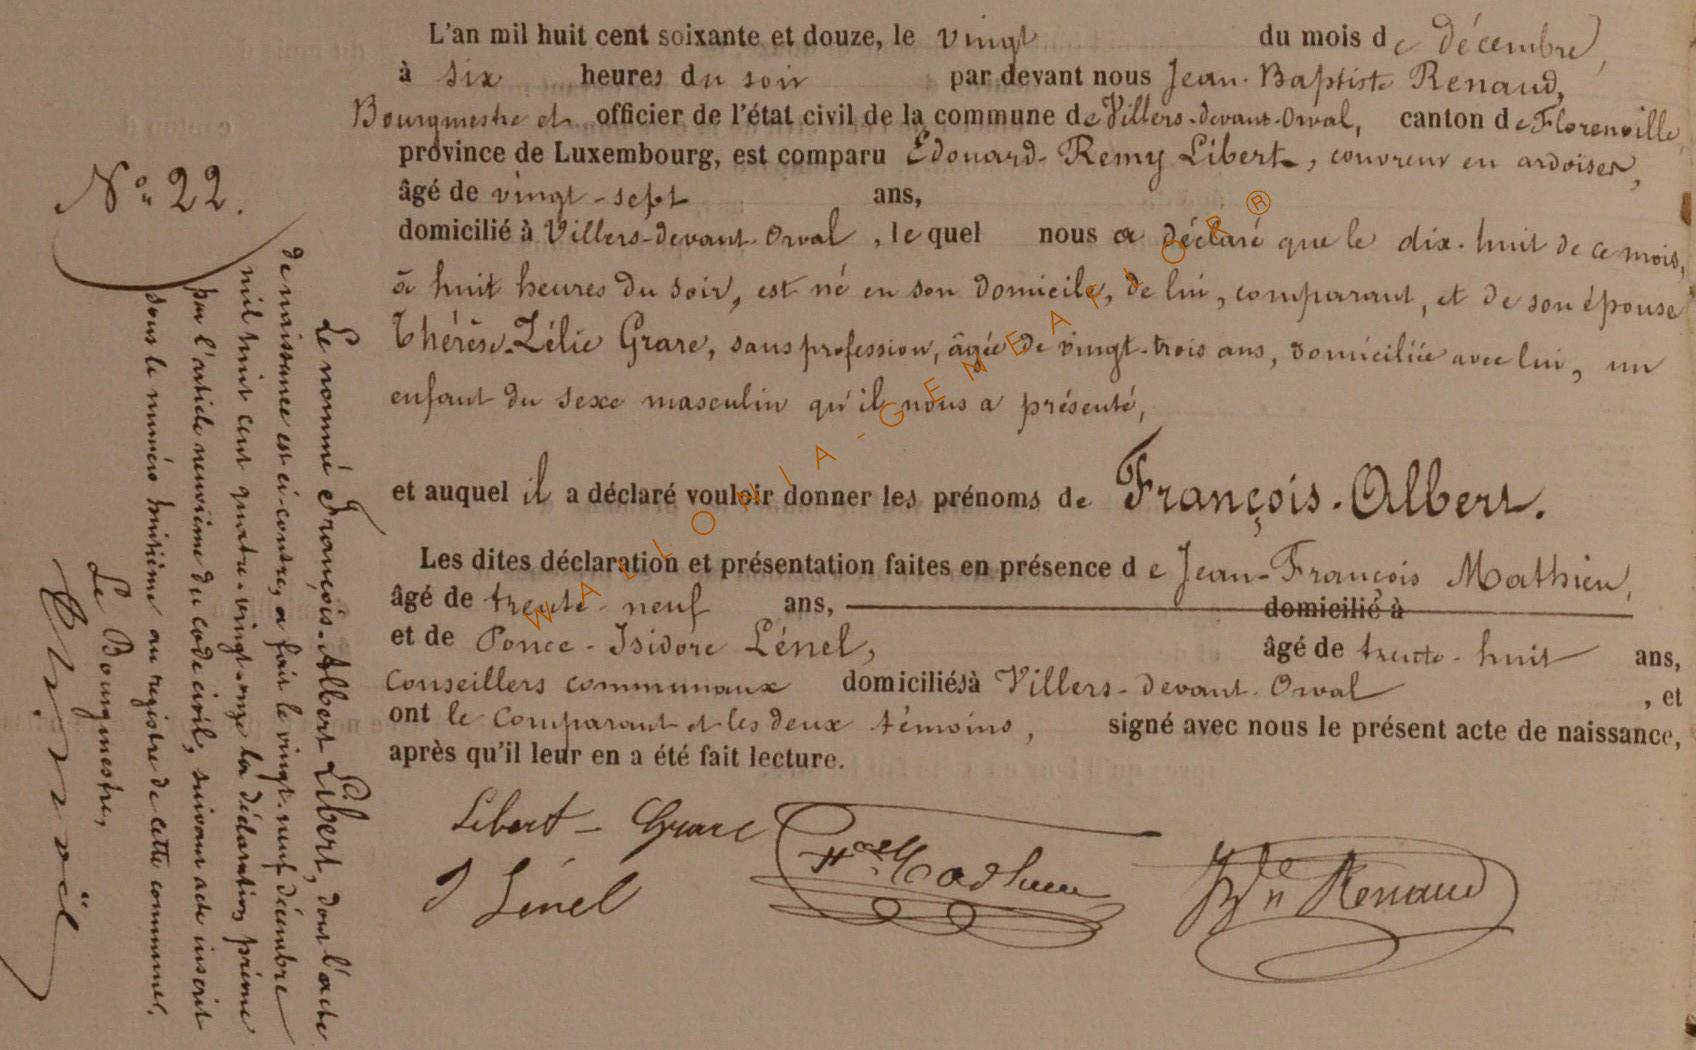 L'an mil huit cent soixante et douze, le vingt du mois de décembre,
à six heures du soir par devant nous Jean-Baptiste Renaud,
Bourgmestre et officier de l'état civil de la commune de Villers-devant-Orval, canton de Florenville,
province de Luxembourg, est comparu Edouard-Remy Libert, couvreur en ardoises,
âgé de vingt-sept ans,
domicilié à Villers-devant-Orval, lequel nous a déclaré que le dix-huit de ce mois,
à huit heures du soir, est né en son domicile, de lui, comparant, et de son épouse
Thérèse-Zélie Grare, sans profession, âgée de vingt-trois ans, domiciliée avec lui, un
enfant du sexe masculin qu'il nous a présenté,
et auquel il a déclaré vouloir donner les prénoms de François-Albert.
Les dites déclaration et présentation faites en présence de Jean-François Mathieu,
âgé de trente-neuf ans, domicilié à
et de Ponce-Isidore Lénel, âgé de trente-huit ans,
Conseillers communaux domiciliés à Villers-devant-Orval, et
ont le comparant et les deux témoins, signé avec nous le présent acte de naissance,
après qu'il leur en a été fait lecture.
Libert-Grare
J Lénel
Mathieu
Renaud
N° 22.
Le nommé François-Albert Libert, dont l'acte
de naissance est ci-contre, a fait le vingt-neuf décembre
mil huit cent quatre-vingt-onze la déclaration prévue
par l'article neuvième du code civil, suivant acte inscrit
sous le numéro huitième au registre de cette commune.
Le Bourgmestre,
WALLONIA-GENEALOR ®